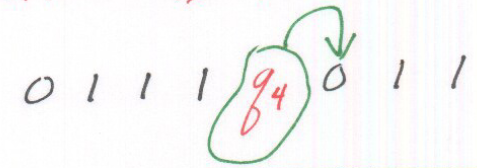 0 1 1 1 q4 0 1 1